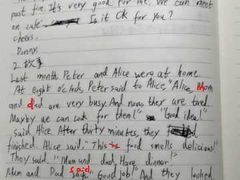 past five. It's very good for me. We can meet
on cute Is it OK for you?
cheers,
Danny
2.
Last month Peter and Alice were at home.
At eight o'clock, Peter said to Alice, "Alice, mom
and dad are very busy. And now they are tired.
Maybe we can cook for them!" "Good idea!"
said Alice. After thirty minutes, they
finished. Alice said, "This food smells delicious!"
They said, "Mum and dad, Have dinner!"
Mum and Dad said, "Good job!" And they looked